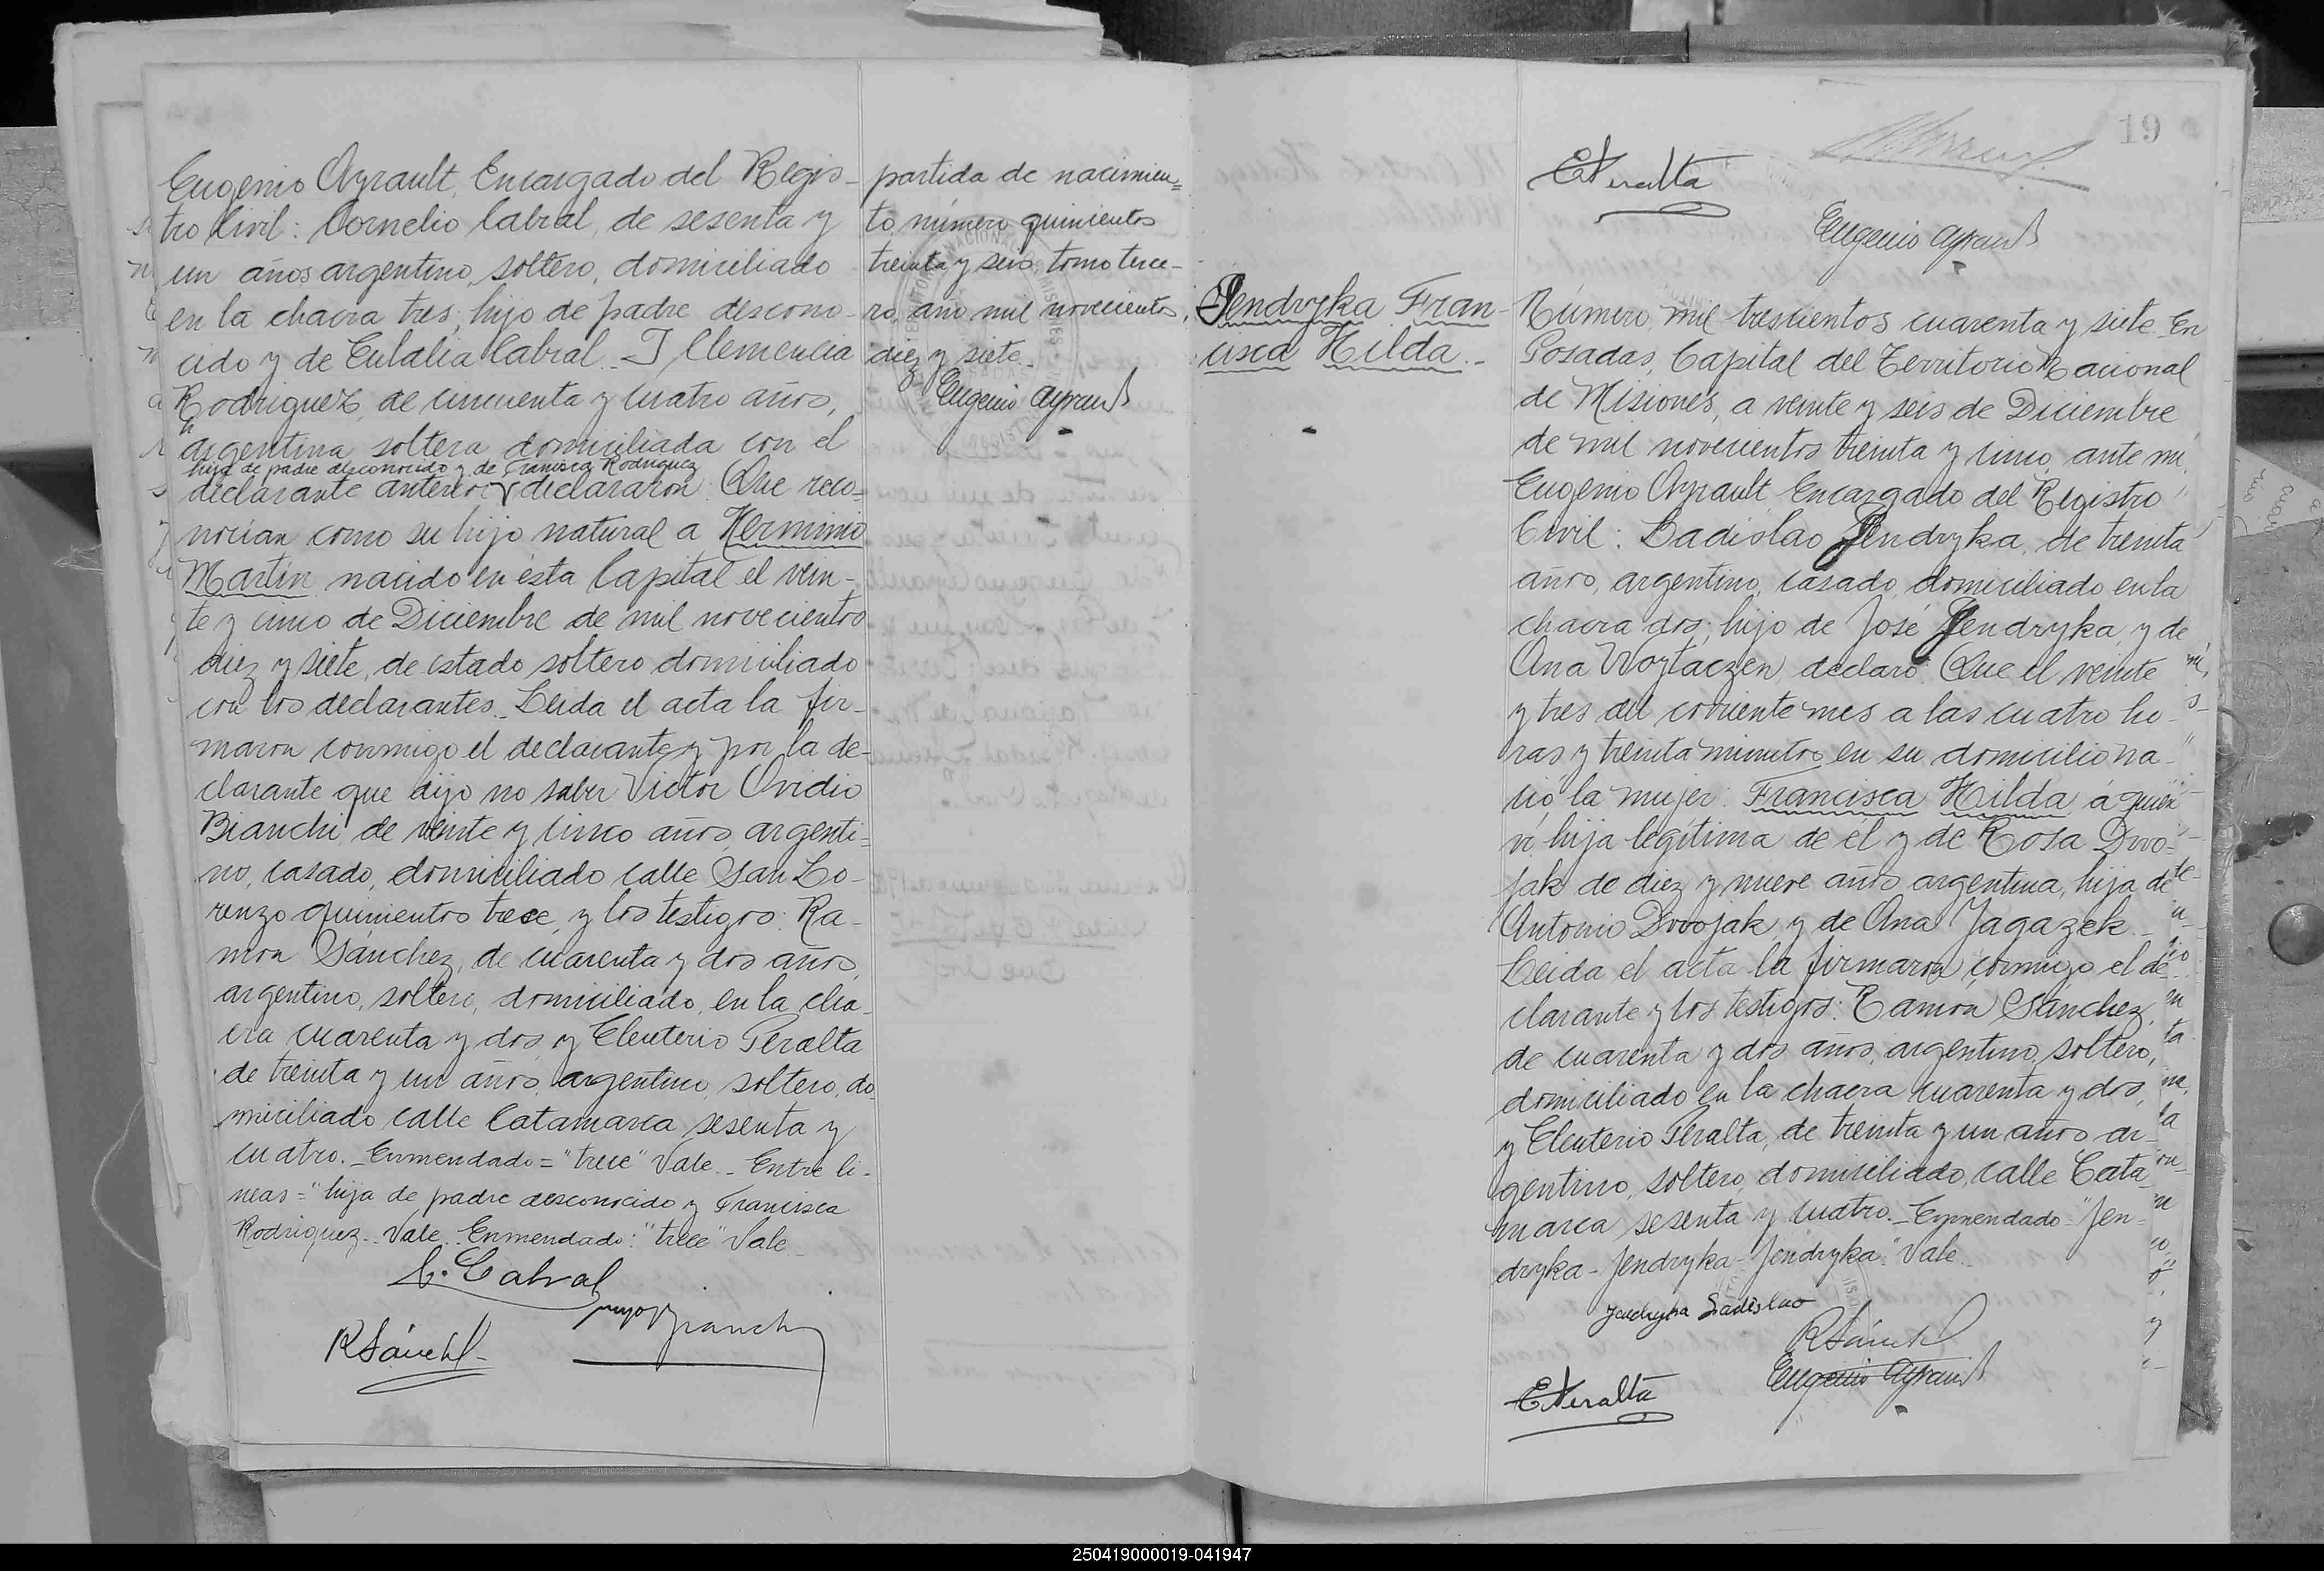 Eugenio Ayrault, Encargado del Regis-
tro Civil: Cornelio Cabral, de sesenta y
un años argentino, soltero, domiciliado
en la chacra tres, hijo de padre descono-
cido y de Eulalia Cabral._ I Clemencia
Rodriguez, de cincuenta y cuatro años,
argentina, soltera domiciliada con el
hija de padre desconocido y de Francisca Rodriguez
declarante anterior y declararon: Que reco-
nocian como su hijo natural a Herminio
Martin nacido en ésta Capital el vein-
te y cinco de Diciembre de mil novecientos
diez y siete, de estado soltero domiciliado
con los declarantes._ Leida el acta la fir-
maron conmigo el declarante y por la de-
clarante que dijo no saber Victor Ovidio
Bianchi, de veinte y cinco años, argenti-
no, casado, domiciliado calle San Lo-
renzo quinientos trece, y los testigos: Ra-
mon Sánchez, de cuarenta y dos años,
argentino, soltero, domiciliado, en la cha-
cra cuarenta y dos, y Eleuterio Peralta
de treinta y un años, argentino, soltero, do-
miciliado calle Catamarca sesenta y
cuatro._ Enmendado="trece" Vale._ Entre li-
neas="hija de padre desconocido y Francisca
Rodriguez._ Vale._ Enmendado: "trece" Vale_
C. Cabral
Bianchi
RSánchez
partida de nacimien=
to número quinientos
treinta y seis, tomo terce-
ro, año mil novecientos
diez y siete_
Eugenio Ayrault
19
EPeralta
Eugenio Ayrault
Jendryka Fran-
cisca Hilda._
Número, mil trescientos cuarenta y siete. En
Posadas, Capital del Territorio Nacional
de Misiones, a veinte y seis de Diciembre
de mil novecientos treinta y cinco, ante mi,
Eugenio Ayrault, Encargado del Registro
Civil: Ladislao Jendryka, de treinta
años, argentino, casado, domiciliado en la
chacra dos, hijo de José Jendryka y de
Ana Woytaczen, declaró: Que el veinte
y tres del corriente mes a las cuatro ho-
ras y treinta minutos en su domicilio na-
ció la mujer: Francisca Hilda, a quien
ví hija legítima de él y de Rosa Dvo-
jak de diez y nueve años argentina, hija de
Antonio Dvojak y de Ana Jagazek._
Leida el acta la firmaron conmigo el de-
clarante y los testigos: Ramon Sánchez,
de cuarenta y dos años, argentino, soltero,
domiciliado en la chacra cuarenta y dos,
y Eleuterio Peralta, de treinta y un años ar-
gentino, soltero, domiciliado, calle Cata-
marca sesenta y cuatro._ Enmendado="Jen-
dryka-Jendryka-Jendryka" Vale_
Jendryka Ladislao
RSánchez
Eugenio Ayrault
EPeralta
250419000019-041947